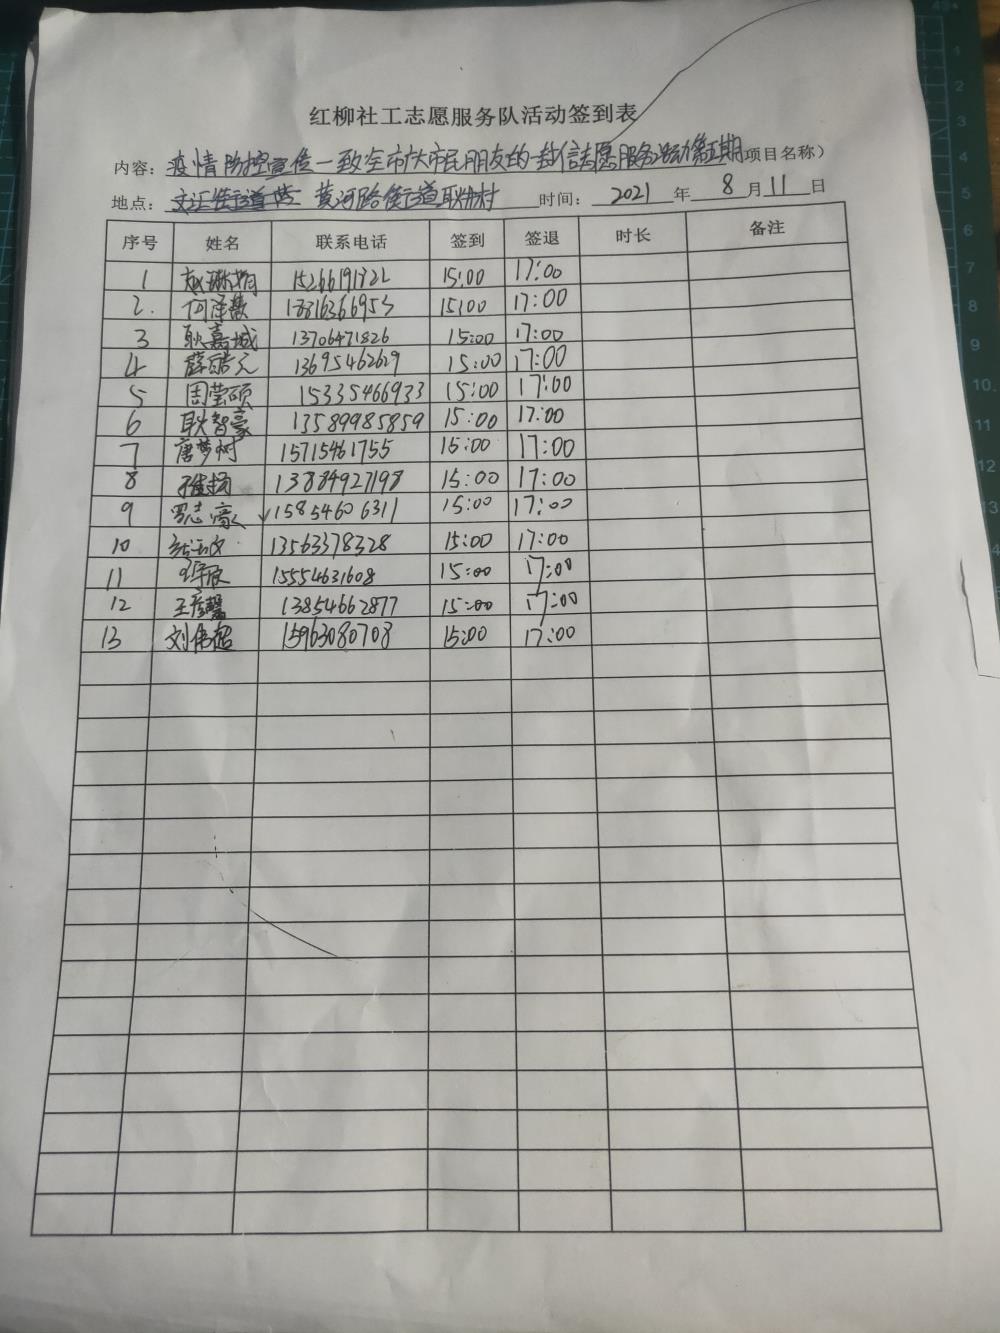 红柳社工志愿服务队活动签到表
内容：疫情防控宣传一致全市广大市民朋友的一封信志愿服务活动第五期项目名称）
地点：文汇街道 黄河路街道耿井村 时间：2021年8月11日
序号 姓名 联系电话 签到 签退 时长 备注
1 15266191822 15:00 17:00
2. 何泽 18816366953 15:00 17:00
3 耿嘉城 13706471826 15:00 17:00
4 薛皓元 13695462629 15:00 17:00
5 周莹硕 15335466933 15:00 17:00
6 耿智豪 13589985859 15:00 17:00
7 唐梦树 15715461755 15:00 17:00
8 13884927198 15:00 17:00
9 罗志豪 15854606311 15:00 17:00
10 13563378328 15:00 17:00
11 15554631608 15:00 17:00
12 王彦馨 13854662877 15:00 17:00
13 刘伟超 15963080708 15:00 17:00